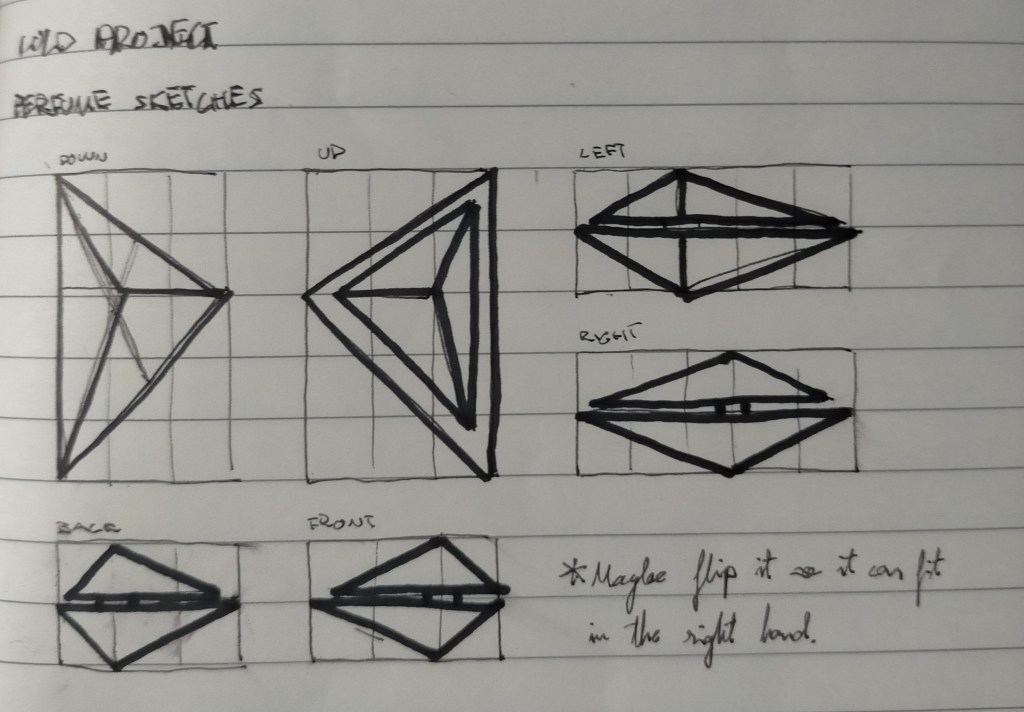 PROJECT
PERFUME SKETCHES
DOWN
UP
LEFT
RIGHT
BACK
FRONT
*Maybe flip it so it can fit
in the right hand.